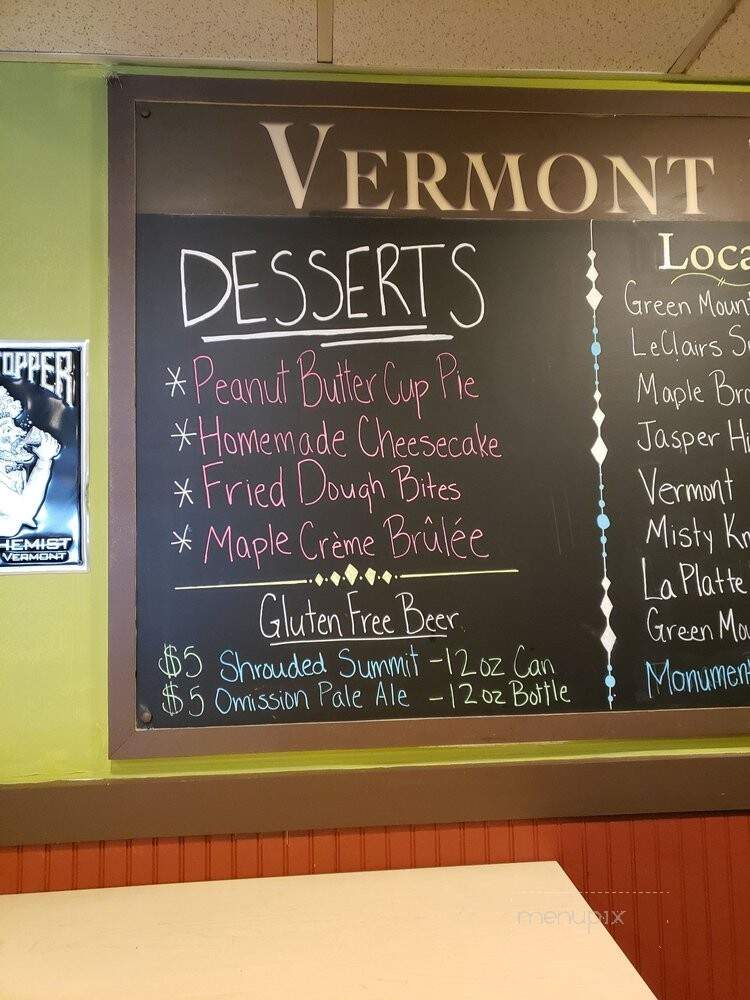 VERMONT
DESSERTS
* Peanut Butter Cup Pie
* Homemade Cheesecake
* Fried Dough Bites
* Maple Crème Brûlée
Gluten Free Beer
$5 Shrouded Summit - 12 oz Can
$5 Omission Pale Ale - 12 oz Bottle
Loca
Green Mount
LeClairs
Maple
Jasper
Vermont
Misty
La Platte
Green
Monument
TOPPER
HEMIST
VERMONT
menupix